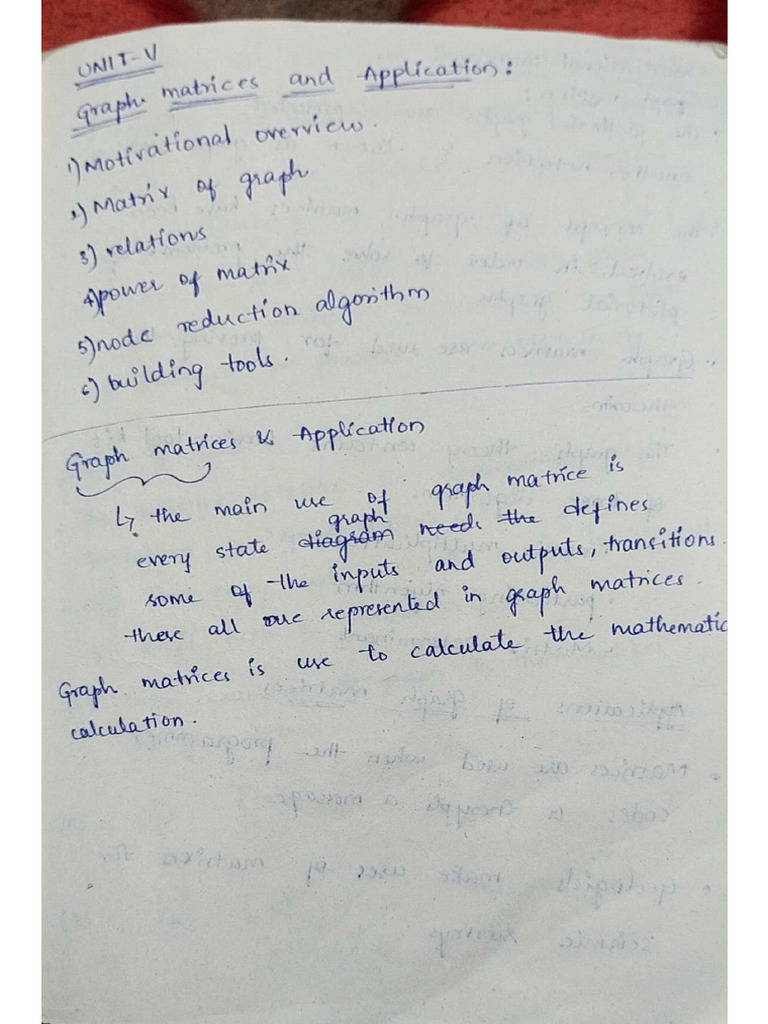 UNIT-V
Graph matrices and Application:
1) Motivational overview.
2) Matrix of graph
3) relations
4) power of matrix
5) node reduction algorithm
6) building tools.
Graph matrices & Application
↳ the main use of graph matrice is
every state diagram graph needs the defines
some of the inputs and outputs, transitions.
these all are represented in graph matrices.
Graph matrices is use to calculate the mathematic
calculation.